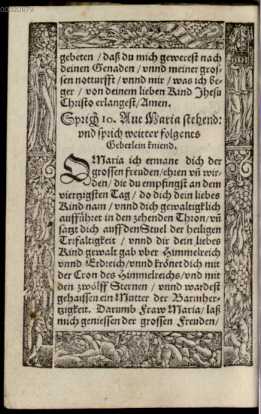 gebeten / daß du mich gewerest nach
deinen Genaden / vnnd meiner gros-
sen notturfft / vnnd mir / was ich be-
ger / von deinem lieben Kind Jhesu
Christo erlangest / Amen.
Sprich 10. Aue Maria stehend:
vnd sprich weitter folgenes
Gebetlein kniend.
O Maria ich ermane dich der
grossen freuden / ehren vñ wir-
den / die du empfingst an dem
viertzigsten Tag / do dich dein liebes
Kind nam / vnnd dich gewaltigklich
aufführet in den zehenden Thron / vñ
satzt dich auff den Stuel der heiligen
Trifaltigkeit / vnnd dir dein liebes
Kind gewalt gab vber Himmelreich
vnnd Erdreich / vnnd krönet dich mit
der Cron des Himmelreichs / vnd mit
den zwölff Sternen / vnnd wardest
gehaissen ein Mutter der Barmher-
zigkeit. Darumb Fraw Maria / laß
mich geniessen der grossen Freuden /